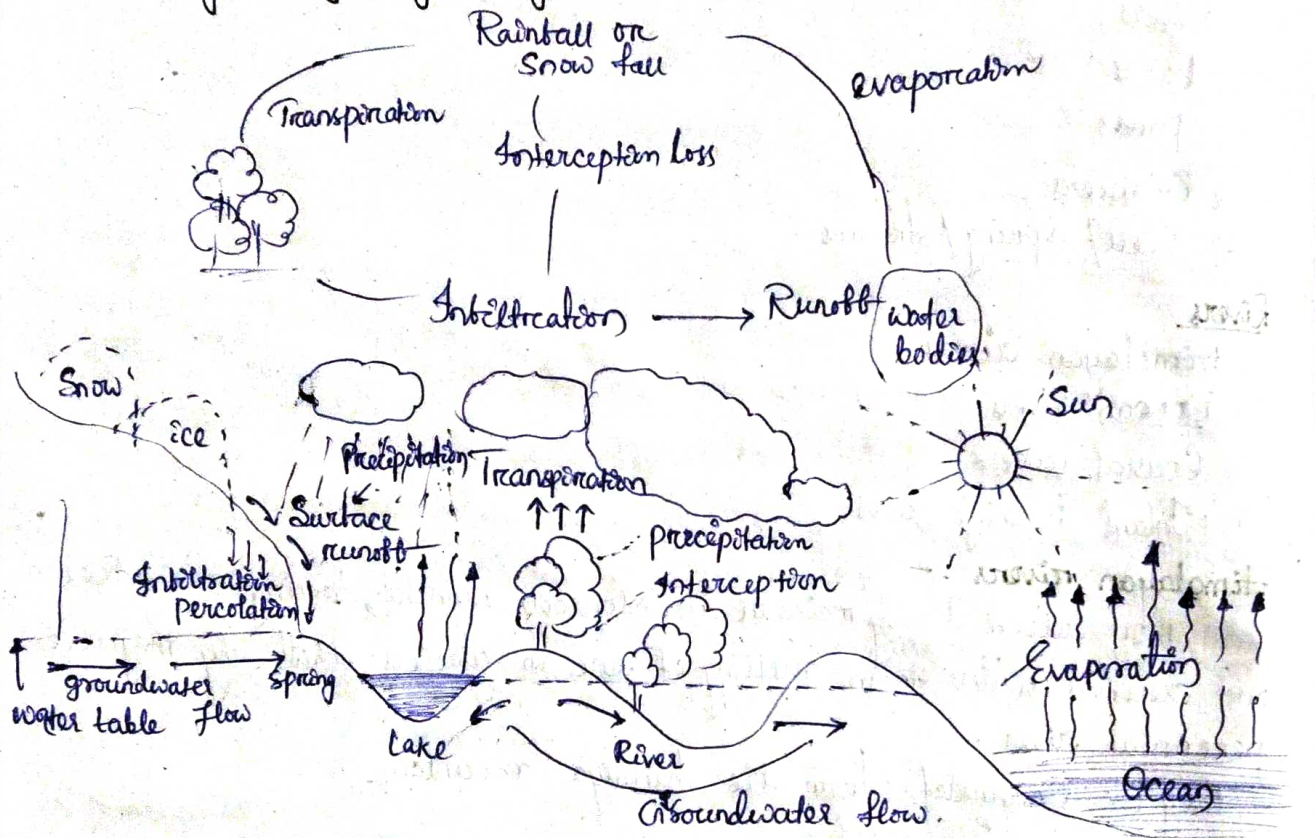 Rainfall or
Snow fall
Transpiration
evaporation
Interception Loss
Infiltration
Runoff
Water
bodies
Snow
ice
Sun
Precipitation
Transpiration
Surface
runoff
Precipitation
Interception
Infiltration
percolation
Evaporation
groundwater
flow
Spring
water table
water table
Lake
River
Groundwater flow.
Ocean
Rivers